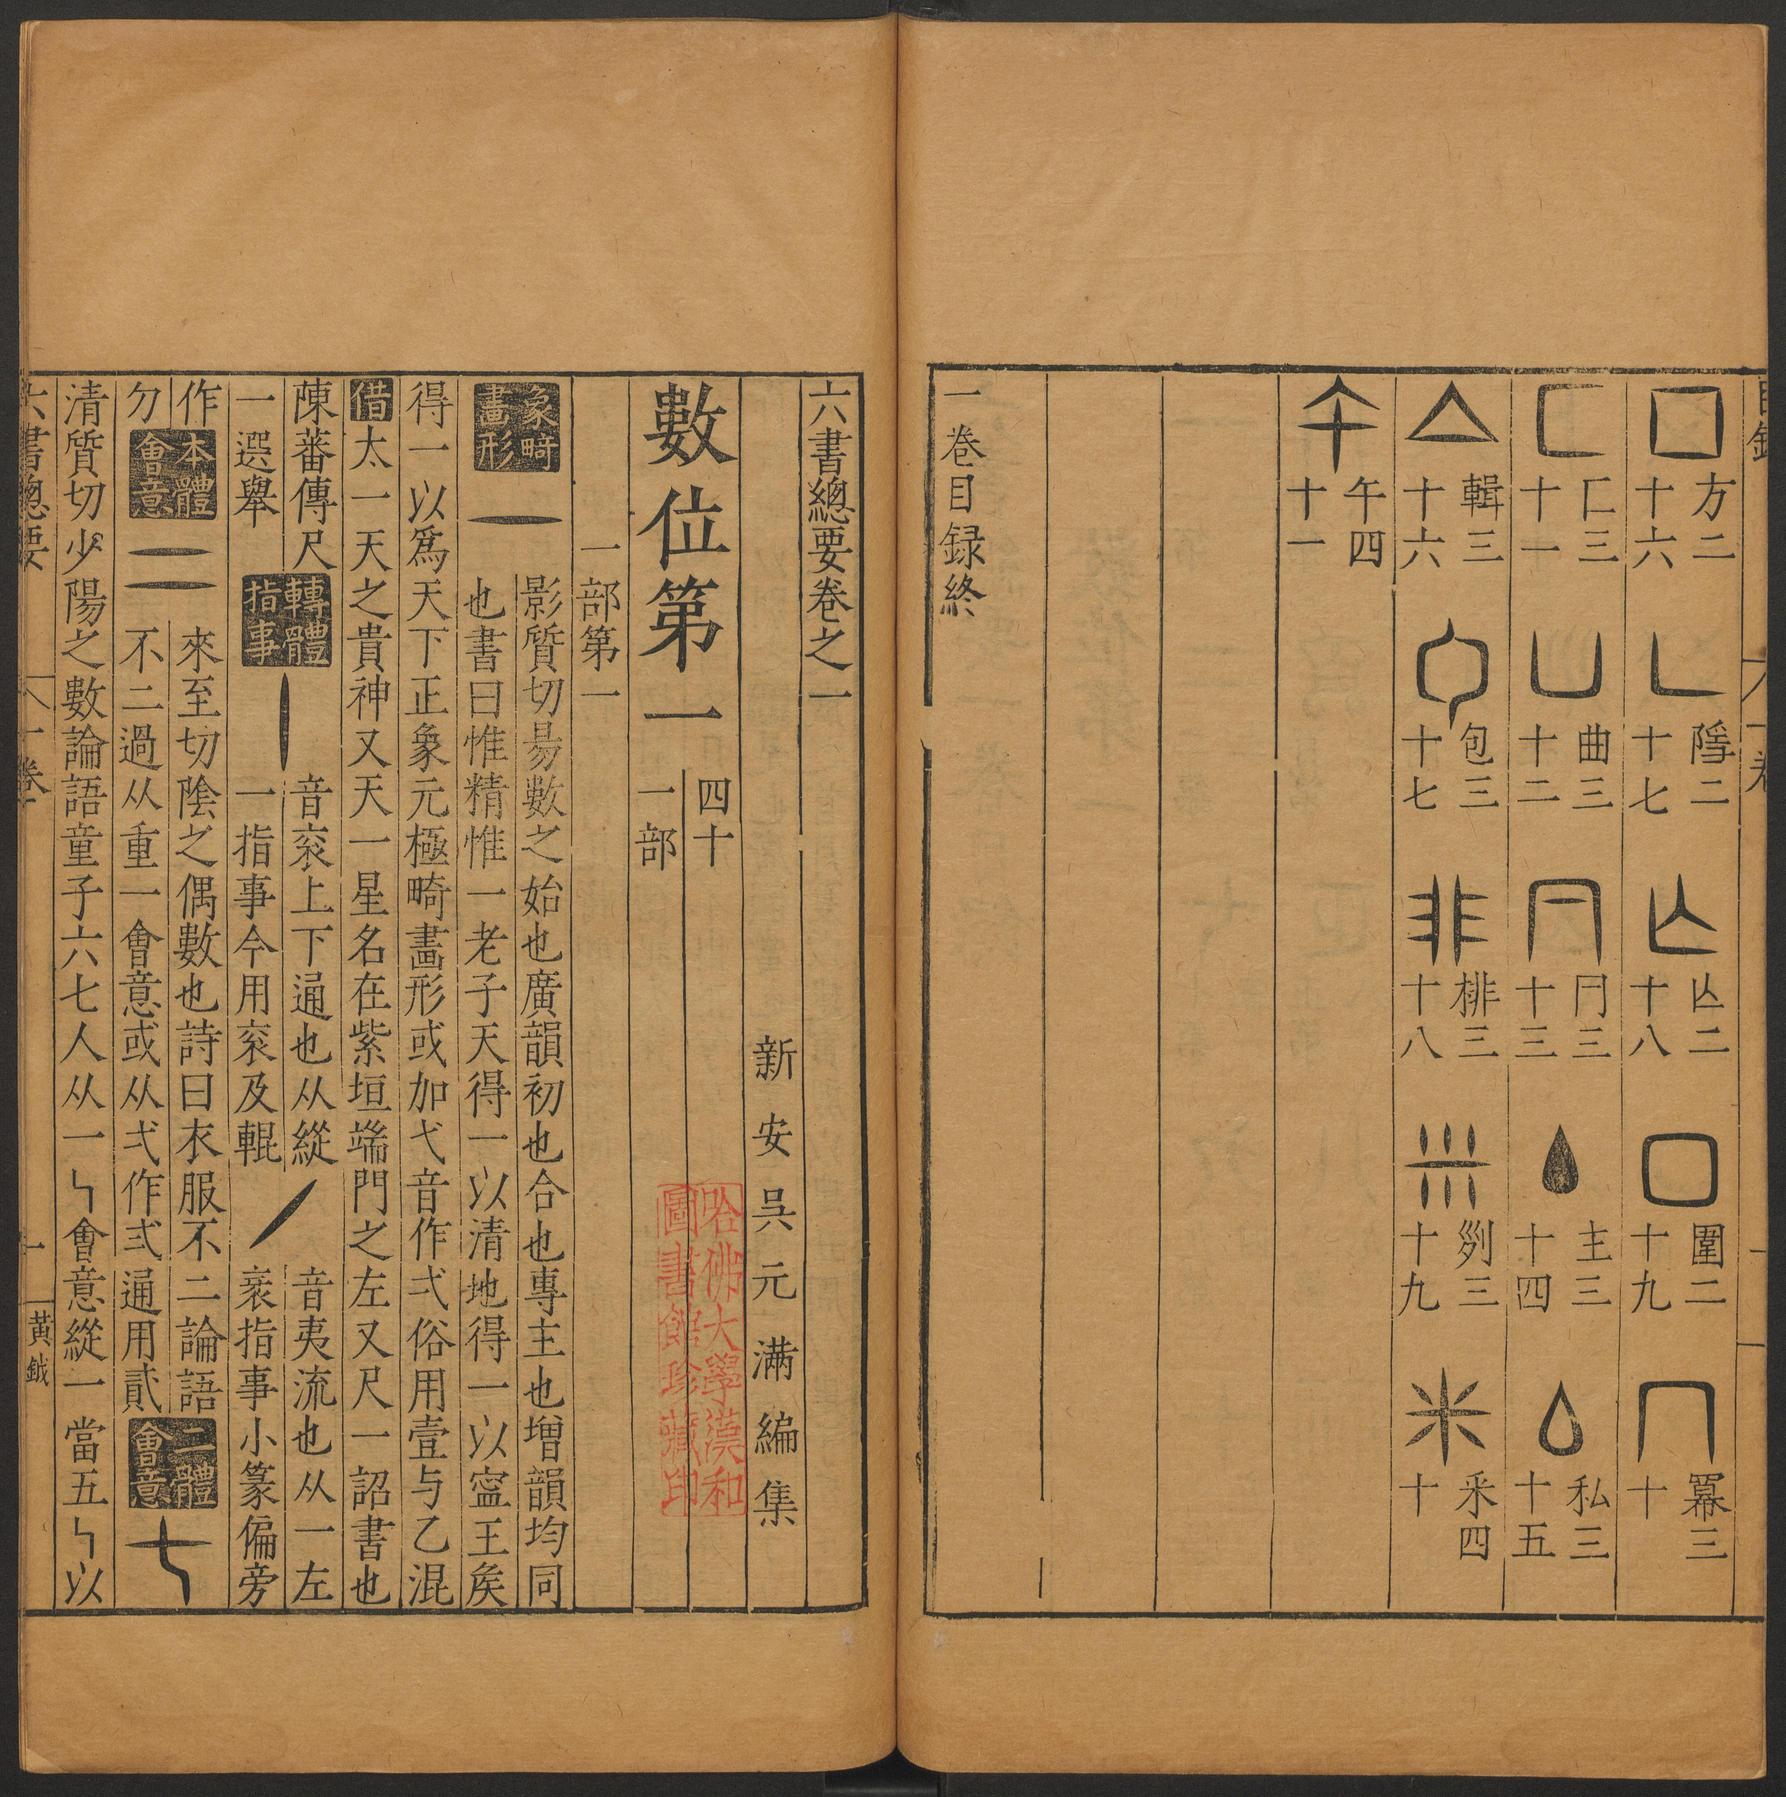 目錄
一卷
方二十六
隱二十七
𠙴二十八
圍二十九
冪三十
匚三十一
曲三十二
冃三十三
主三十四
私三十五
輯三十六
包三十七
排三十八
剡三十九
釆四十
午四十一
一卷目録終
六書總要卷之一
新安吳元滿編集
數位第一
四十一部
哈佛大學漢和圖書館珍藏印
一部第一
象畸畫形
一
影質切易數之始也廣韻初也合也專主也增韻均同
也書曰惟精惟一老子天得一以清地得一以寍王矦
得一以爲天下正象元極畸畫形或加弋音作弌俗用壹与乙混
借太一天之貴神又天一星名在紫垣端門之左又尺一詔書也
陳蕃傳尺一選舉
轉體指事
丨
音衮上下通也从縱一指事今用衮及輥
丿
音夷流也从一左
袤指事小篆偏旁
作
本體會意
二
來至切陰之偶數也詩曰衣服不二論語
不二過从重一會意或从弌作弍通用貳
二體會意
七
清質切少陽之數論語童子六七人从一𠃑會意縱一當五𠃑以
六書總要
一卷
一
黃鉞